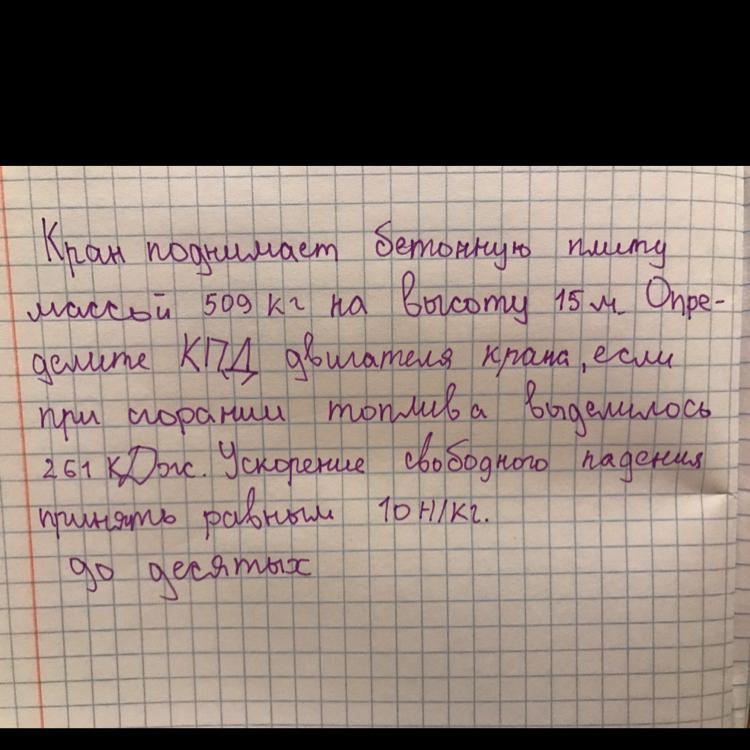 Кран поднимает бетонную плиту
массой 509 кг на высоту 15 м. Опре-
делите КПД двигателя крана, если
при сгорании топлива выделилось
261 кДж. Ускорение свободного падения
принять равным 10 Н/кг.
до десятых